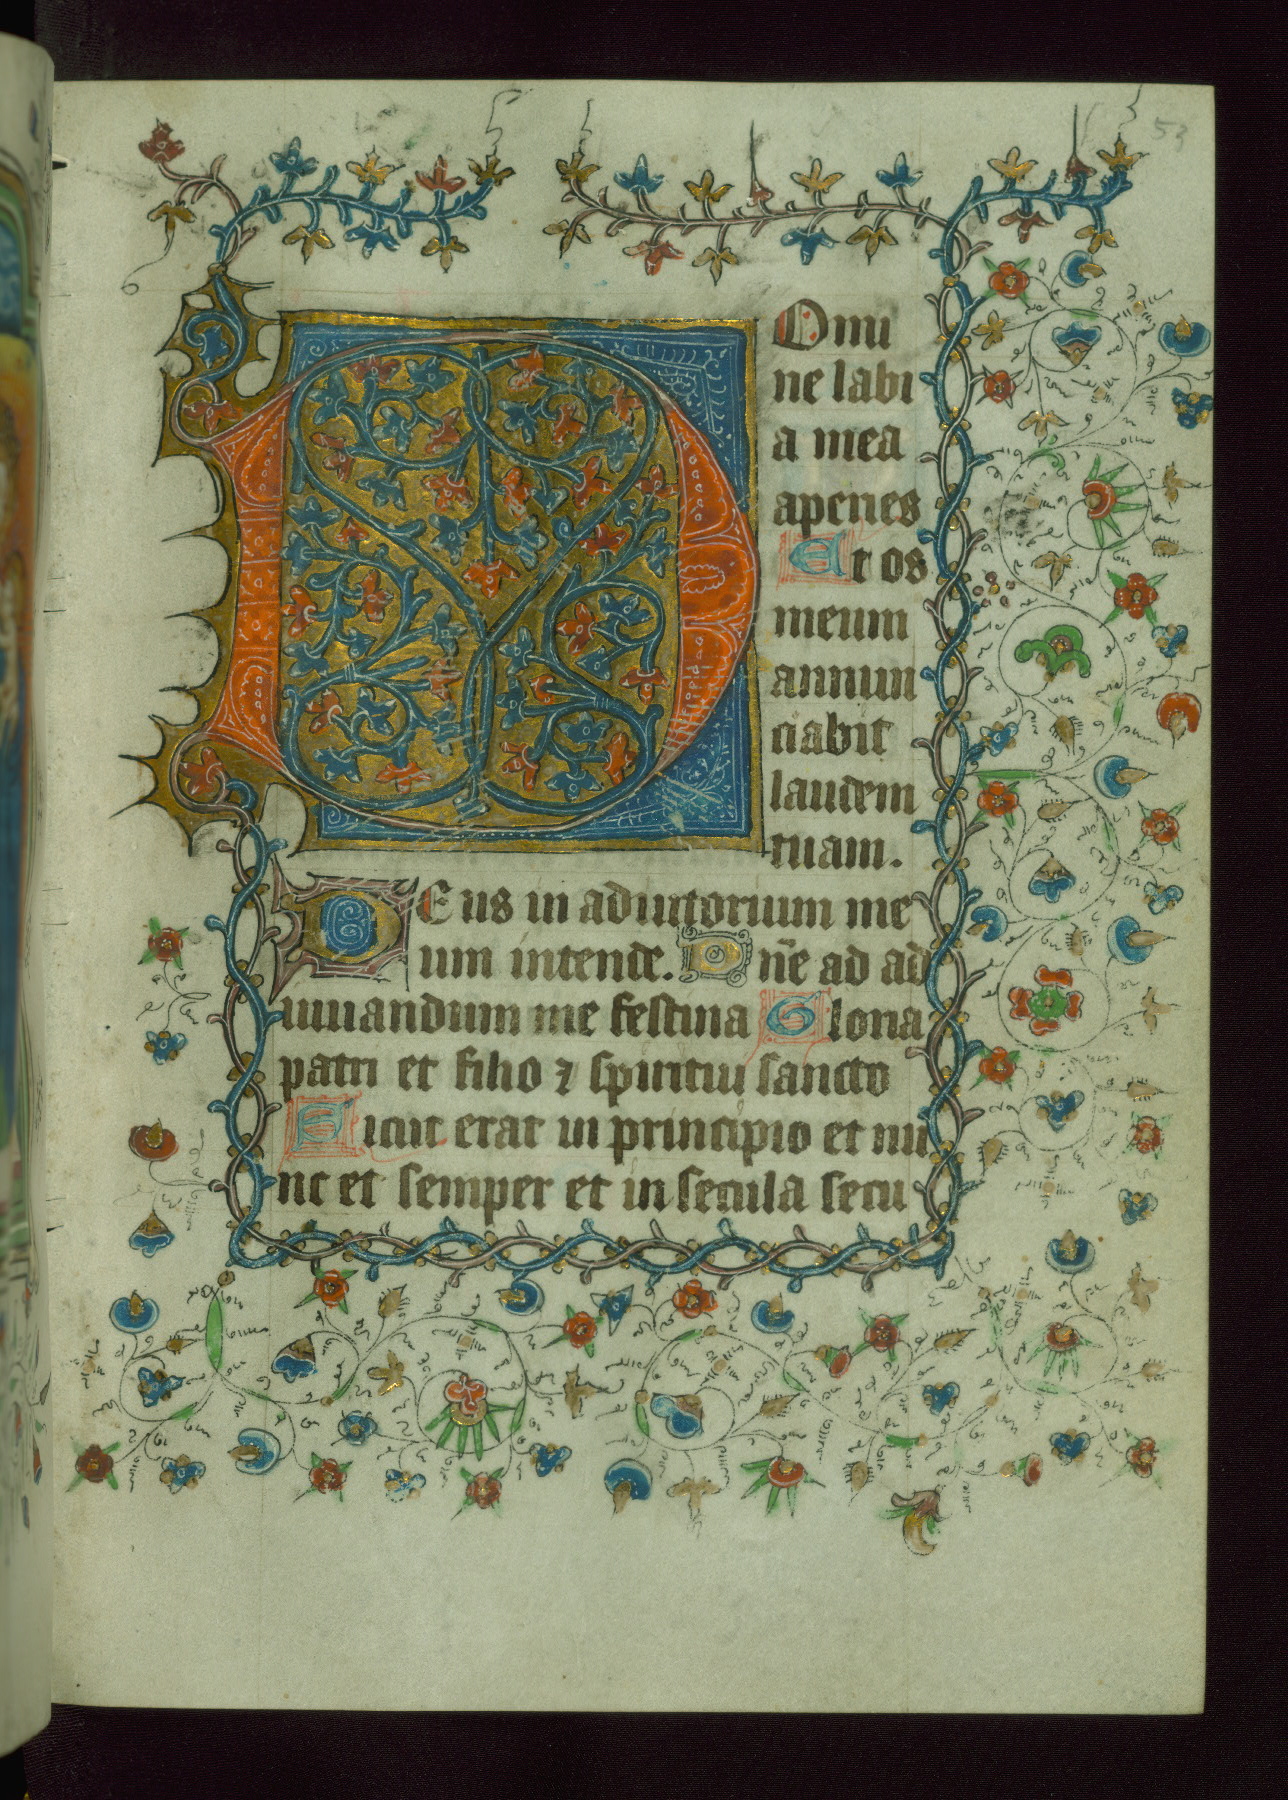 53
DOmi
ne labi
a mea
aperies
Et os
meum
annun
ciabit
laudem
tuam.
DEus in adiutorium me
um intende. Dn̄e ad ad
iuuandum me festina Gloria
patri et filio ⁊ spiritui sancto
Sicut erat in principio et nu
nc et semper et in secula secu